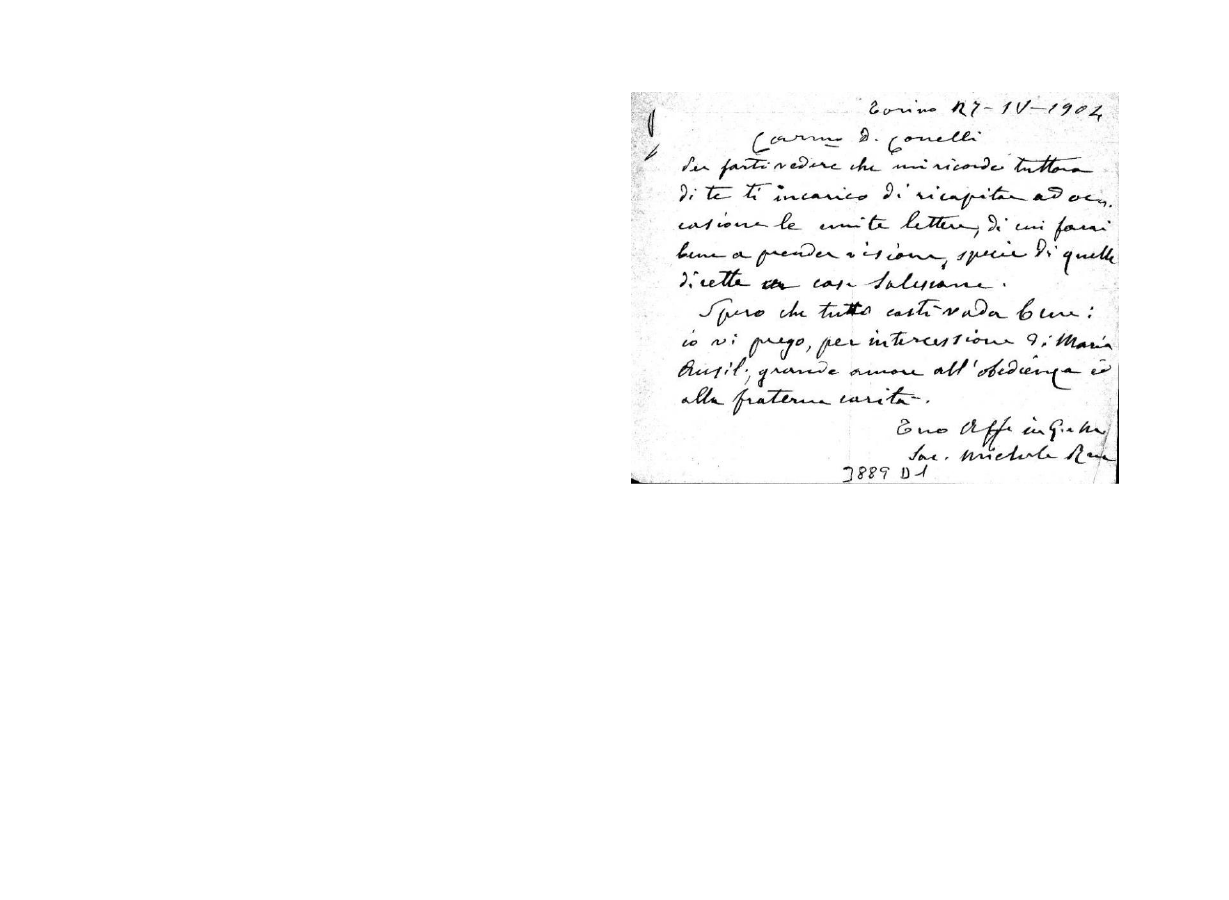 Torino 27-IV-1904
Carmo D. Conelli
Per farti vedere che mi ricordo tuttora
di te ti incarico di ricapitar ad oc
casione le unite lettere, di cui farai
bene a prender visione, specie di quelle
dirette a case Salesiane.
Spero che tutto costì vada bene:
io vi prego, per intercessione di Maria
Ausil., grande amore all'obedienza e
alla fraterna carità.
Tuo Aff in G. e M.
Sac. Michele Rua
3889 D1